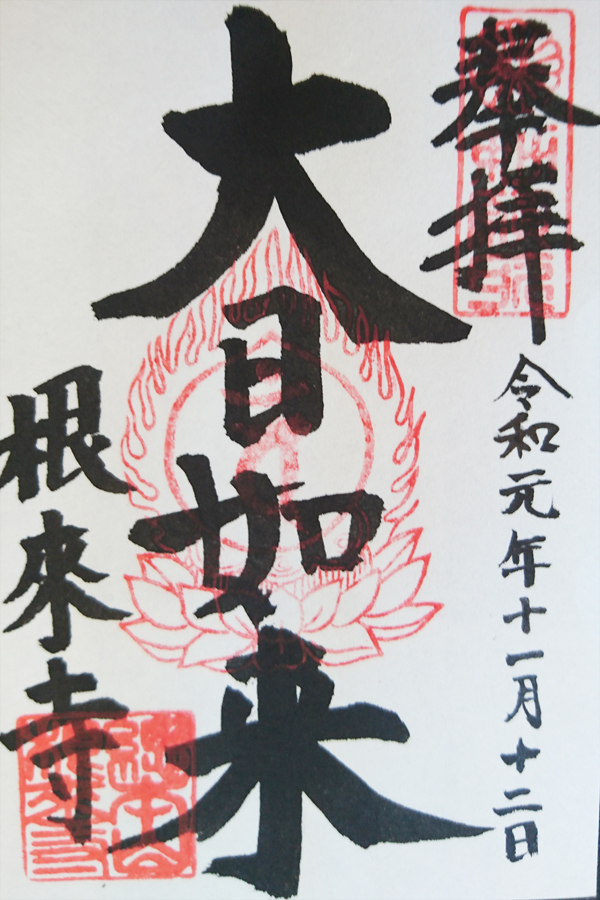 奉拜
令和元年十一月十二日
大日如来
根來寺